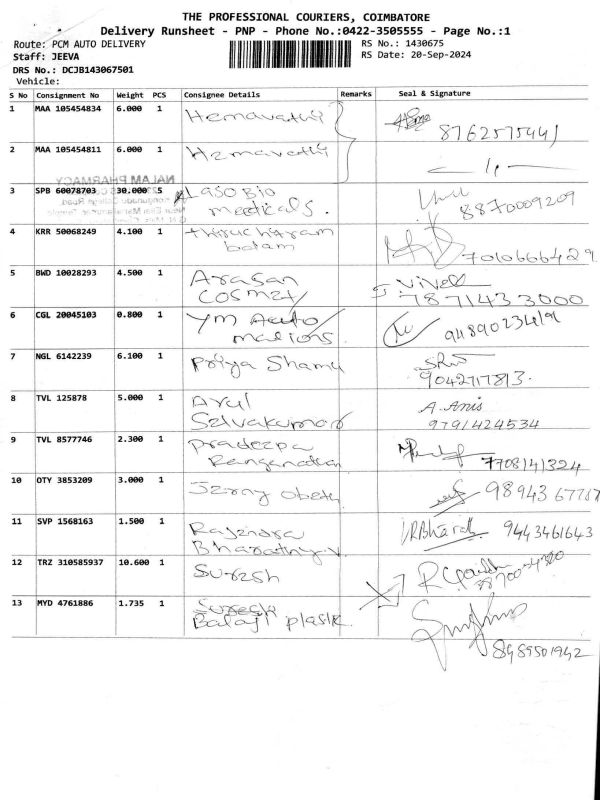 THE PROFESSIONAL COURIERS, COIMBATORE
Delivery Runsheet - PNP - Phone No.:0422-3505555 - Page No.:1
Route: PCM AUTO DELIVERY RS No.: 1430675
Staff: JEEVA RS Date: 20-Sep-2024
DRS No.: DCJB143067501
Vehicle:
S No Consignment No Weight PCS Consignee Details Remarks Seal & Signature
1 MAA 105454834 6.000 1 Hemavathy 8762575441
2 MAA 105454811 6.000 1 Hemavathy
NALAM PHARMACY
3 SPB 60078703 30.000 5 Laso Bio
medicals. 8870009209
4 KRR 50068249 4.100 1 thiruchitram
balam 7010666429
5 BWD 10028293 4.500 1 Arasan
Cosmet/ 7871433000
6 CGL 20045103 0.800 1 YM Auto/
mations. 9489023419
7 NGL 6142239 6.100 1 Priya Shamy
9042717813.
8 TVL 125878 5.000 1 Arul A. Anis
Selvakumar 9791424534
9 TVL 8577746 2.300 1 Pradeepa
Ranganathan 7708141324
10 OTY 3853209 3.000 1 Jerry Obeth 98943 67787
11 SVP 1568163 1.500 1 Rajendra VRBharath 9443461643
Bharathy.V.
12 TRZ 310585937 10.600 1 Suresh
13 MYD 4761886 1.735 1 Suresh
Balaji plastk. 8489501942